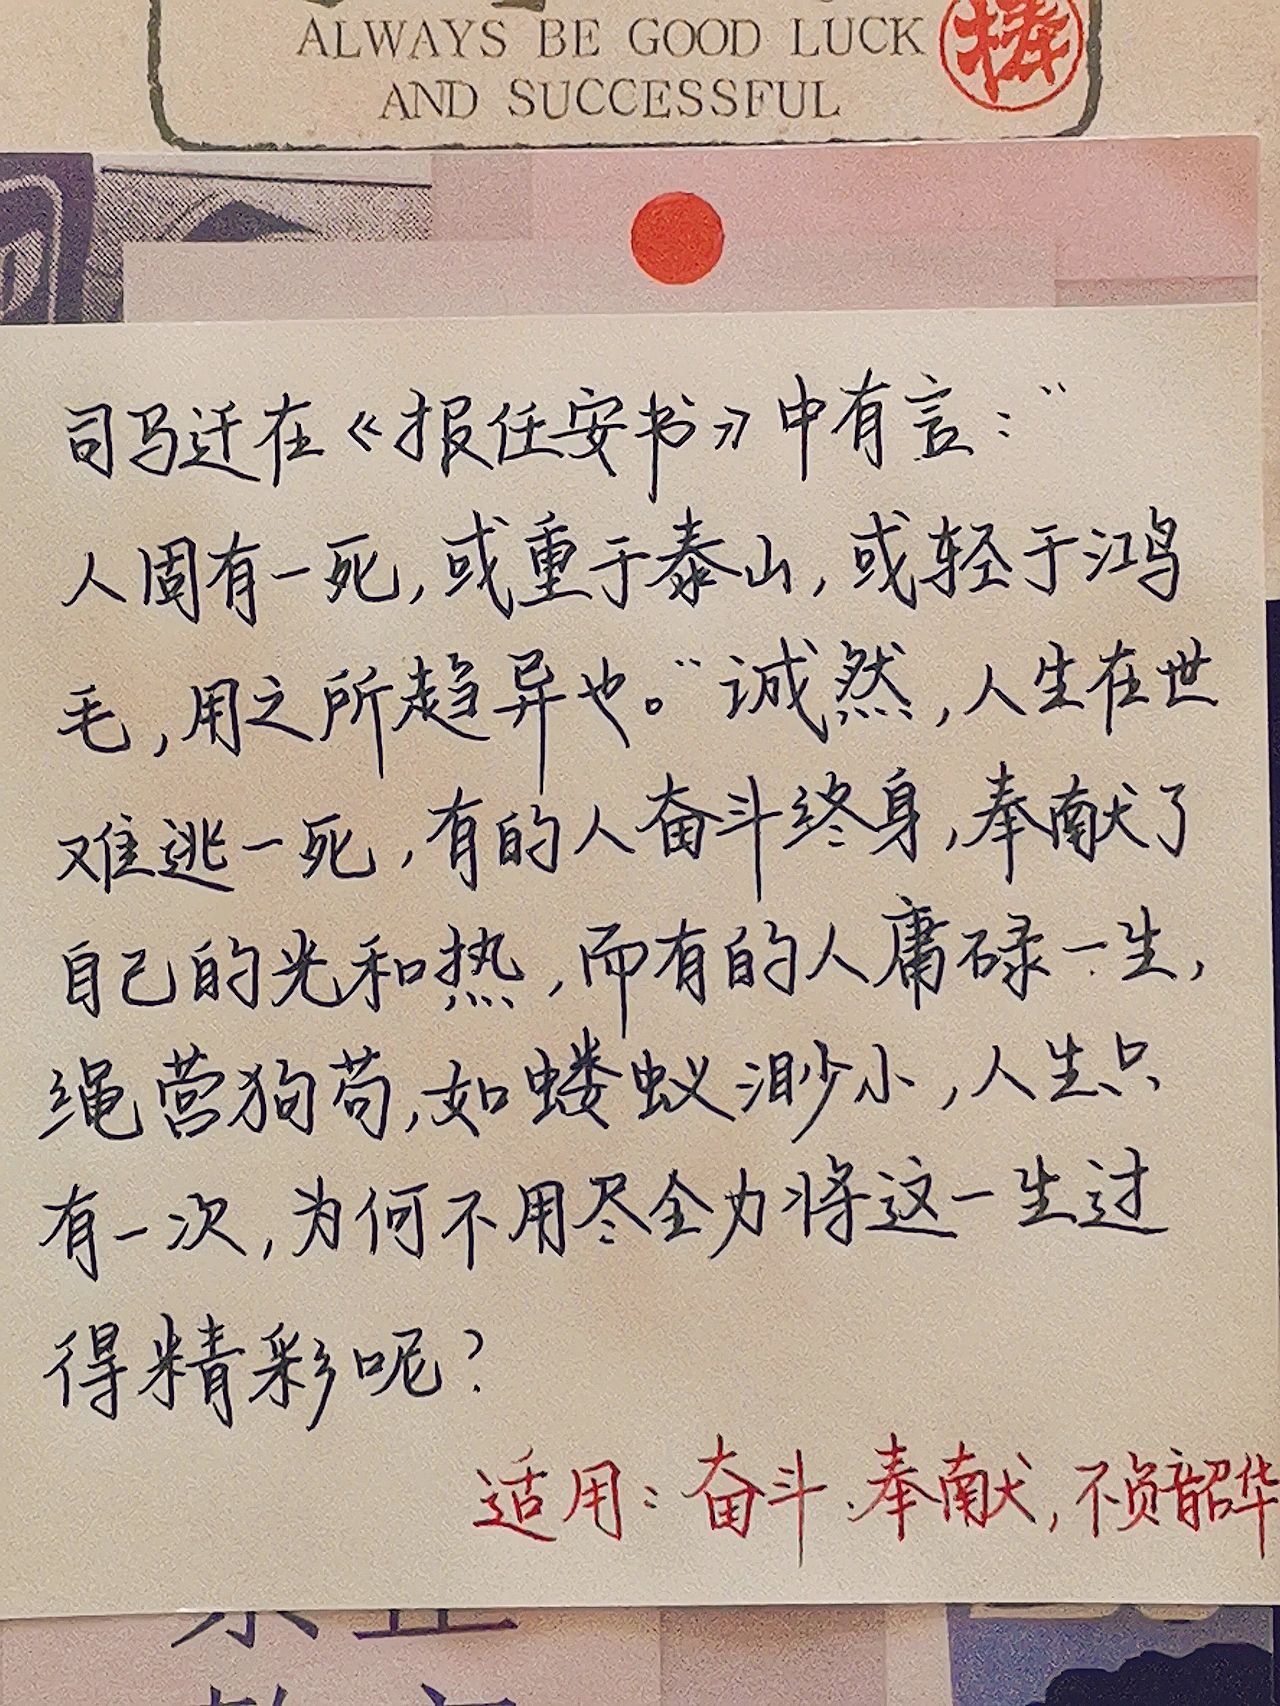 ALWAYS BE GOOD LUCK
AND SUCCESSFUL
司马迁在《报任安书》中有言："
人固有一死，或重于泰山，或轻于鸿
毛，用之所趋异也。"诚然，人生在世
难逃一死，有的人奋斗终身，奉献了
自己的光和热，而有的人庸碌一生，
绳营狗苟，如蝼蚁渺小，人生只
有一次，为何不用尽全力将这一生过
得精彩呢？
适用：奋斗、奉献，不负韶华